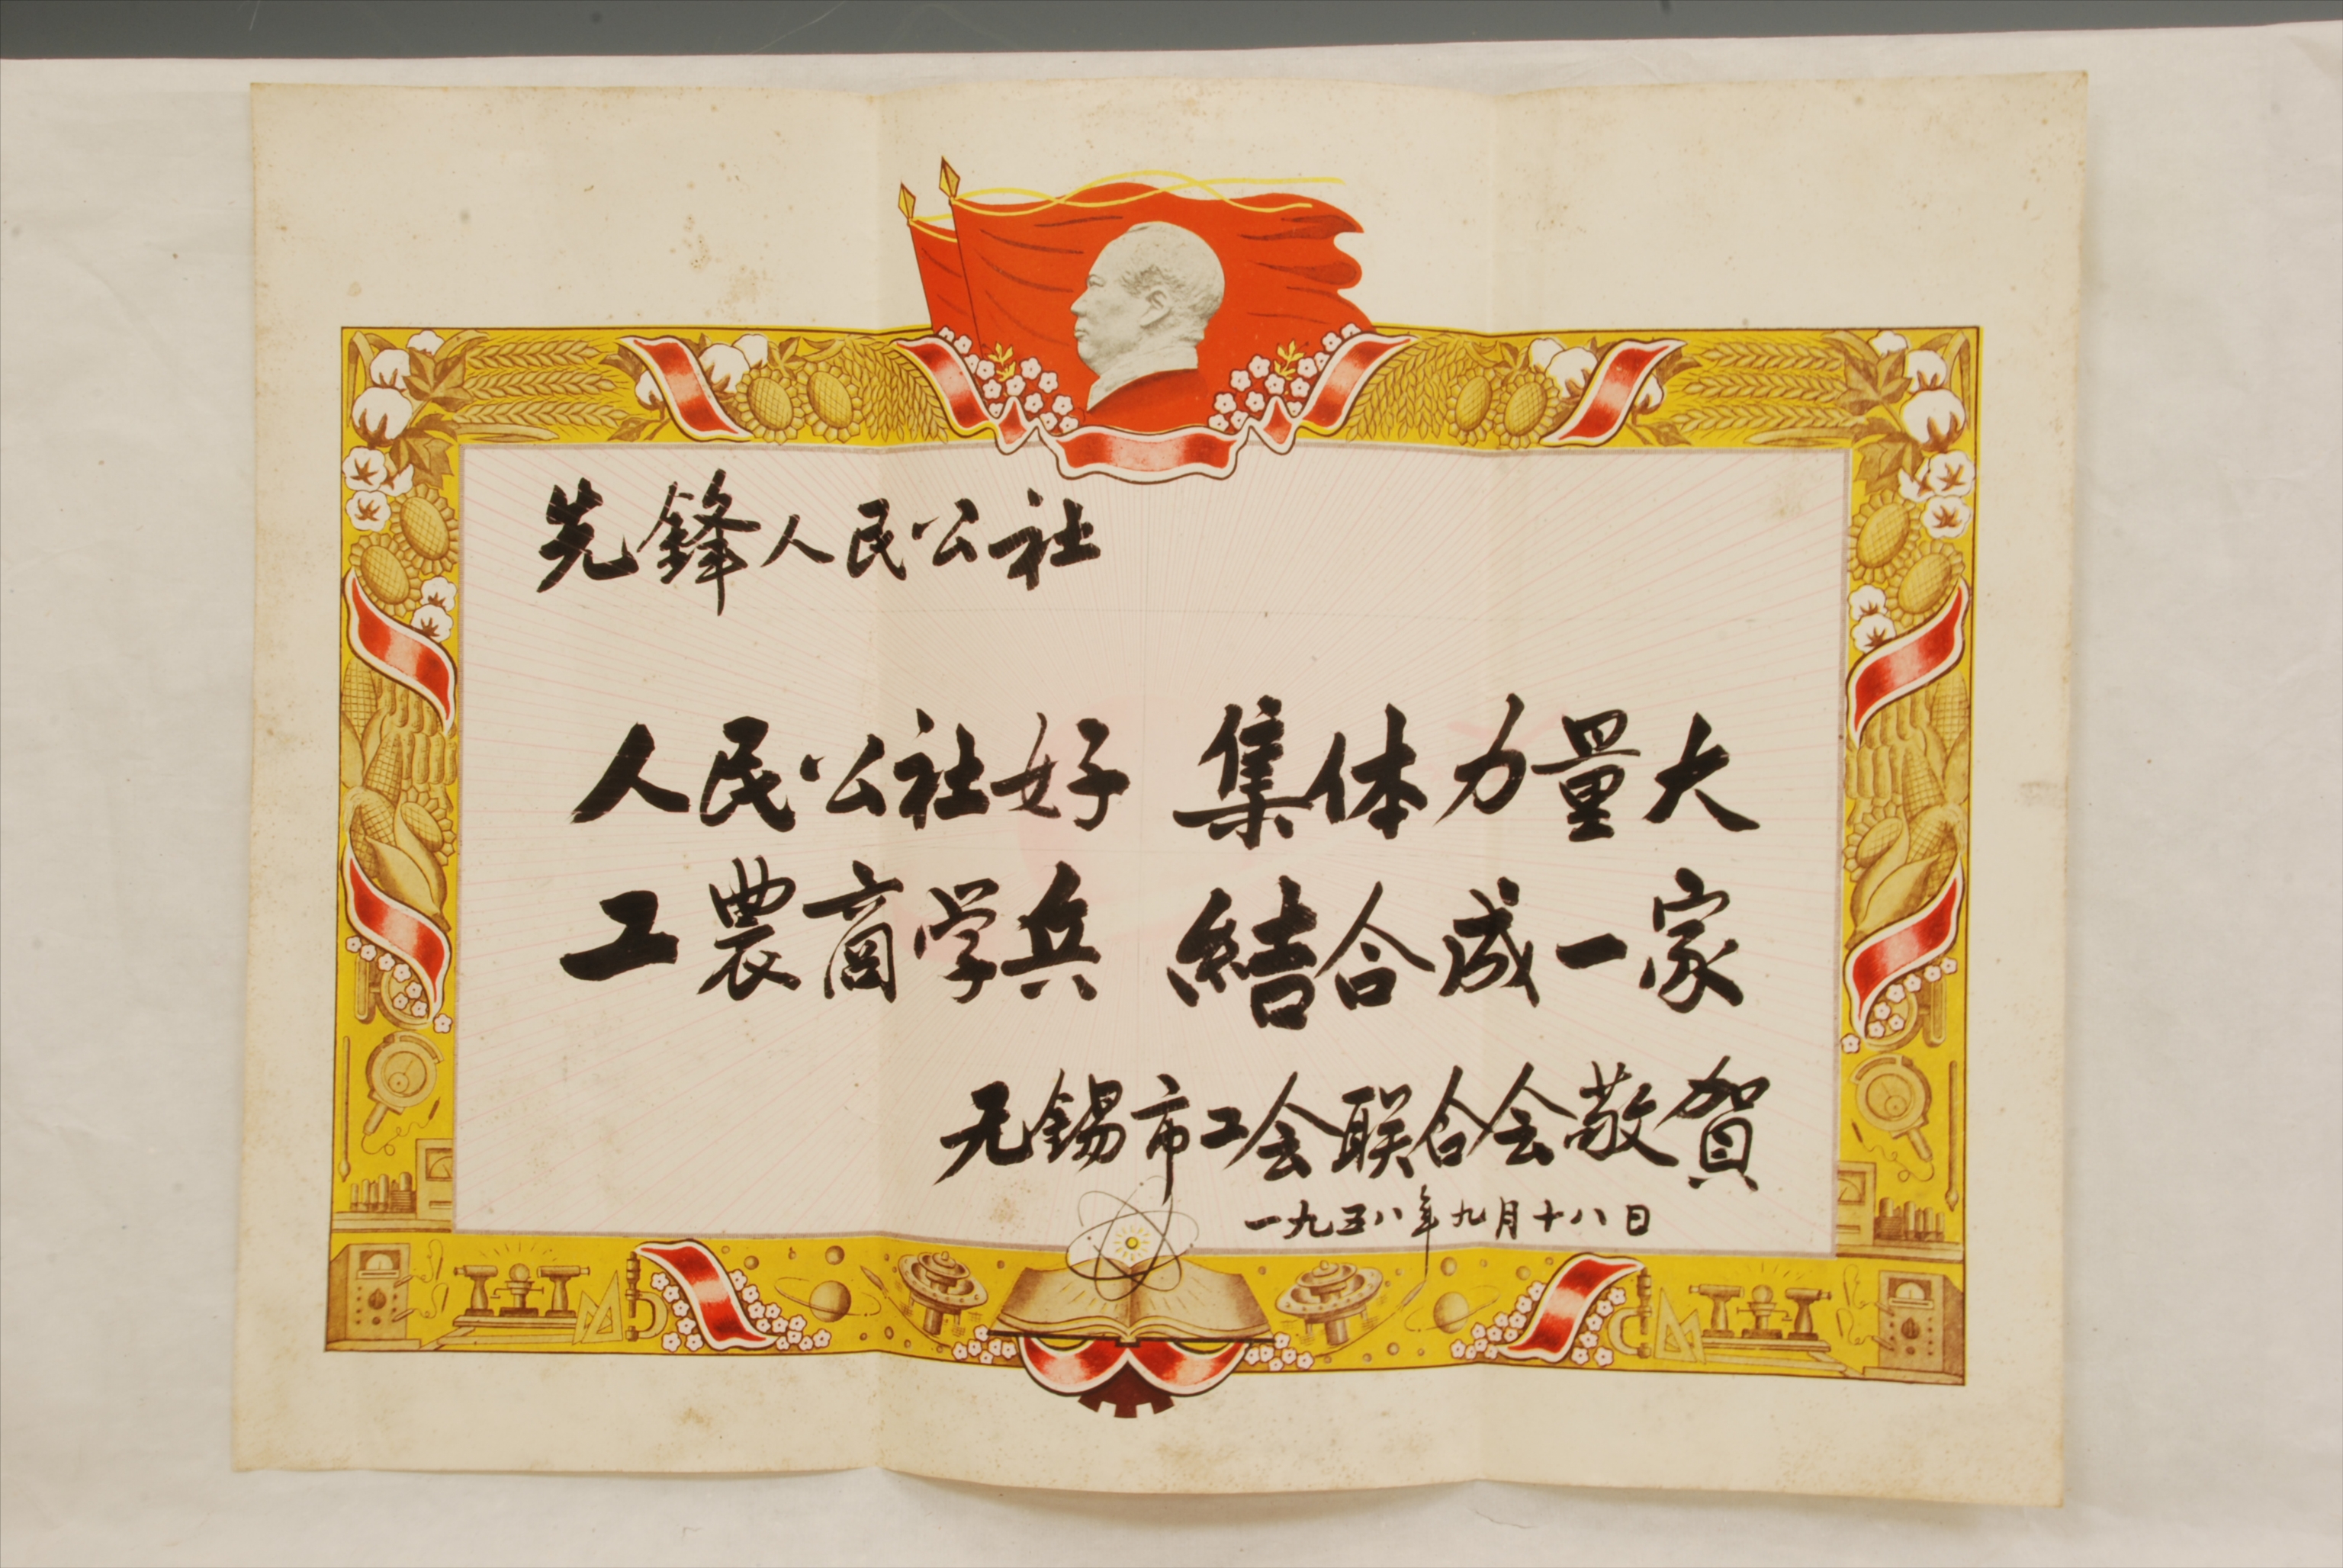 先鋒人民公社
人民公社好 集体力量大
工農商学兵 結合成一家
无錫市工会联合会敬賀
一九五八年九月十八日